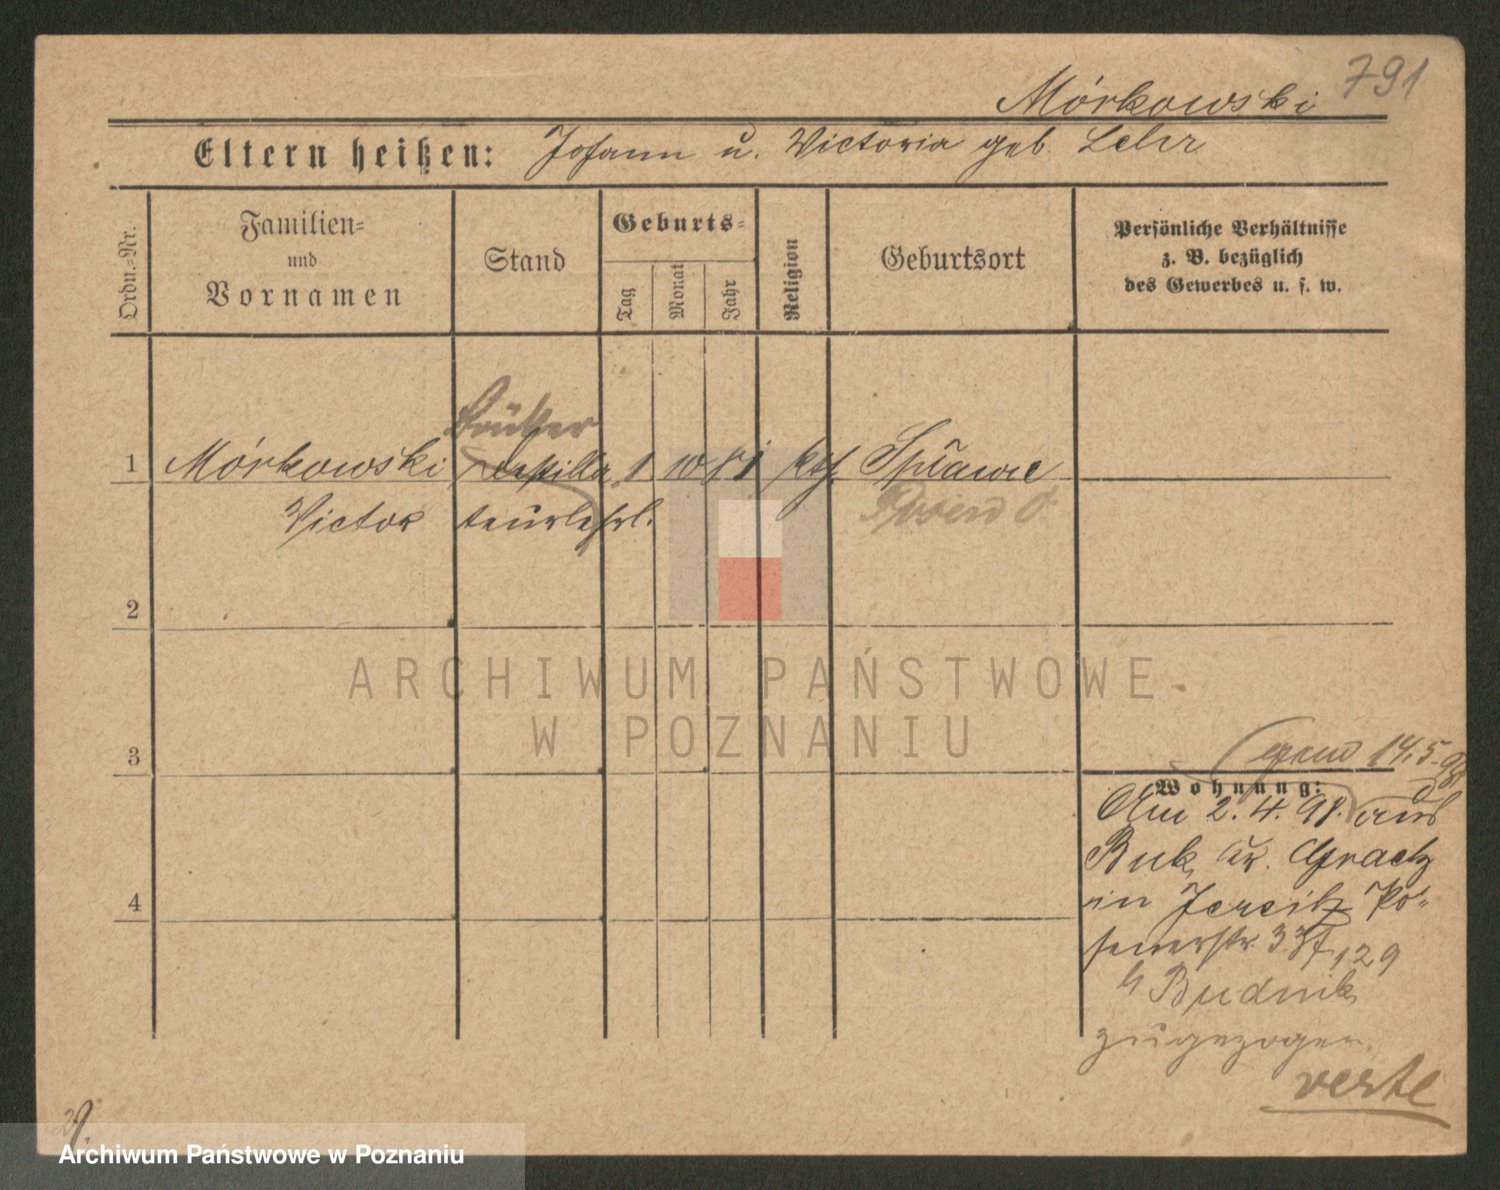 791
Mórkowski
Eltern heißen: Johann u. Victoria geb. Lehr
Ordn.-Nr.
Familien-
und
Vornamen
Stand
Geburts-
Tag
Monat
Jahr
Religion
Geburtsort
Persönliche Verhältnisse
z. B. bezüglich
des Gewerbes u. s. w.
1 Mórkowski Destilla 1 10 81 kth. Spławie
Victor teurlehrl. Posen O.
2
3
4
14.5.98
Wohnung:
Am 2.4.98. aus
Buk, Kr. Graetz
in Jersitz Po-
senerstr. 33
129
b Budnik
zugezogen.
verte
ARCHIWUM PAŃSTWOWE
W POZNANIU
Archiwum Państwowe w Poznaniu